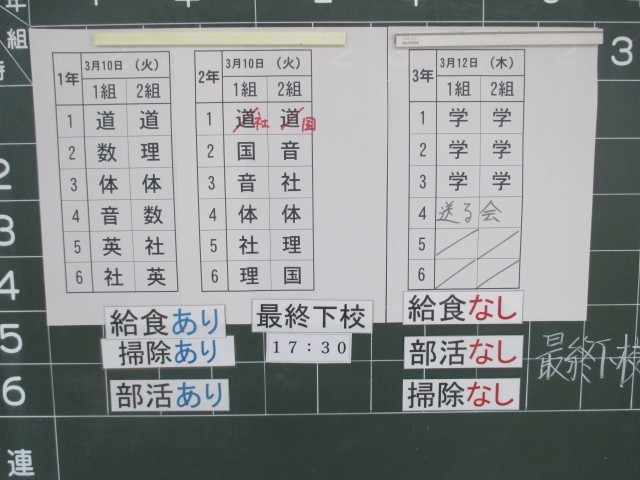 年
組
時
2
3
4
5
6
連
3
1年 3月10日 （火）
1組 2組
1 道 道
2 数 理
3 体 体
4 音 数
5 英 社
6 社 英
2年 3月10日 （火）
1組 2組
1 道 社 道 国
2 国 音
3 音 社
4 体 体
5 社 理
6 理 国
3年 3月12日 （木）
1組 2組
1 学 学
2 学 学
3 学 学
4 送る会
5
6
給食あり
掃除あり
部活あり
最終下校
17：30
給食なし
部活なし
掃除なし
最終下校